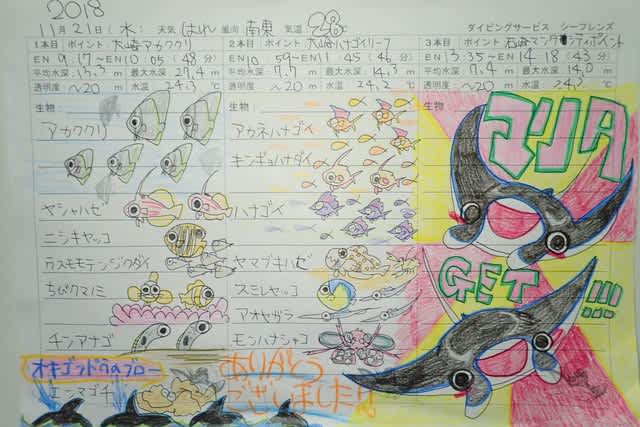 2018
11月21日(水) 天気 はれ 風向 南東 気温 28℃ ダイビングサービス シーフレンズ
1本目 ポイント 大崎アカククリ 2本目 ポイント 大崎ハナゴイリーフ 3本目 ポイント 石崎マンタシティポイント
EN 9:17 ~ EN 10:05 (48分) EN 10:59 ~ EN 11:45 (46分) EN 13:35 ~ EN 14:18 (43分)
平均水深 13.3 m 最大水深 27.4 m 平均水深 7.7 m 最大水深 14.3 m 平均水深 7.4 m 最大水深 14.0 m
透明度 ~20 m 水温 24.3 ℃ 透明度 ~20 m 水温 24.2 ℃ 透明度 ~20 m 水温 24.3 ℃
生物 生物 生物
アカククリ アカネハナゴイ マンタ
キンギョハナダイ
ヤシャハゼ ハナゴイ
ニシキヤッコ
クロスモモテンジクダイ ヤマブキハゼ GET!!!
ちびクマノミ スミレヤッコ
アオヤガラ
チンアナゴ モンハナシャコ
オキゴンドウのブロー ありがとう
エニマゴチ ございました!!